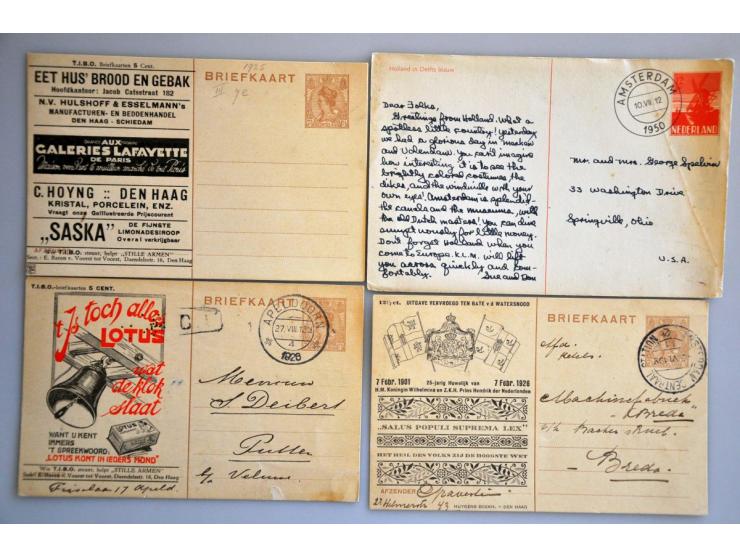 T.I.B.O. Briefkaarten 5 Cent.
EET HUS' BROOD EN GEBAK
Hoofdkantoor: Jacob Catsstraat 182
N.V. HULSHOFF & ESSELMANN's
MANUFACTUREN- EN BEDDENHANDEL
DEN HAAG - SCHIEDAM
AUX
GALERIES LAFAYETTE
DE PARIS
C. HOYNG :: DEN HAAG
KRISTAL, PORCELEIN, ENZ.
Vraagt onze Geïllustreerde Prijscourant
"SASKA"
DE FIJNSTE
LIMONADESIROOP
Overal verkrijgbaar
T.I.B.O. steunt, helpt "STILLE ARMEN"
Secr.: E. Baron v. Voorst tot Voorst, Daendelsstr. 16, Den Haag
1925
BRIEFKAART
Holland in Delfts blauw
Dear Folks,
Greetings from Holland. What a
spotless little country! Yesterday
we had a glorious day in Marken
and Volendam. You can't imagine
how interesting it is to see the
brightly colored costumes, the
dikes, and the windmills with your
own eyes! Amsterdam is splendid-
the canals and the museums, with
the old Dutch masters! You can dine
sumptuously for little money.
Don't forget Holland when you
come to Europe. K.L.M. will lift
you across quickly and com-
fortably.
Sue and Don
AMSTERDAM
10.VII.12
1950
NEDERLAND
Mr. and Mrs. George Spelvin
33 Washington Drive
Springville, Ohio
U.S.A.
T.I.B.O.-BRIEFKAARTEN 5 CENT.
't Is toch alles
LOTUS
wat
de klok
slaat
WANT U KENT
IMMERS
'T SPREEKWOORD:
"LOTUS KOMT IN IEDERS MOND"
Wie T.I.B.O. steunt, helpt "STILLE ARMEN"
Secr.: E. Baron v. Voorst tot Voorst, Daendelsstr. 16, Den Haag
BRIEFKAART
APELDOORN
27.VIII.12
4
1926
Mevrouw
S. Deibert
Putten
Veluwe
UITGAVE VERVROEGD TEN BATE v d WATERSNOOD
7 Febr. 1901
25-jarig Huwelijk van
7 Febr. 1926
H.M. Koningin Wilhelmina en Z.K.H. Prins Hendrik der Nederlanden
"SALUS POPULI SUPREMA LEX"
HET HEIL DES VOLKS ZIJ DE HOOGSTE WET
AFZENDER
HUYGENS BOEKH. - DEN HAAG
BRIEFKAART
Afd.
Machinefabriek
"Breda"
Breda